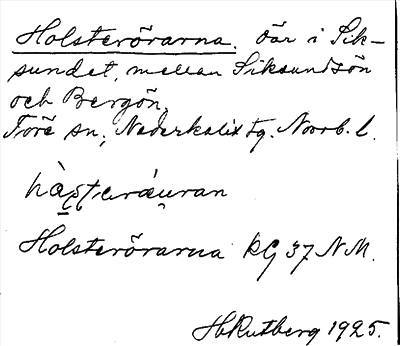 Holsterörarna. Öar i Sik-
sundet, mellan Siksundsön
och Bergön.
Töre sn, Nederkalix tg. Norrb. l.
Holsterörarna KG 37 NM.
H Rutberg 1925.